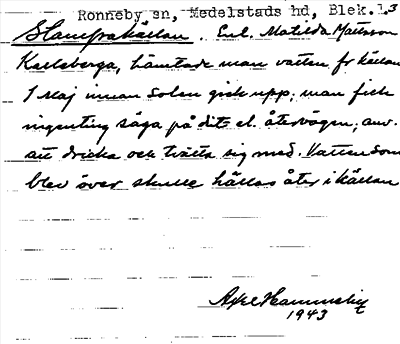 Ronneby sn, Medelstads hd, Blek. 3
Slamprakällan. Enl. Matilda Mattsson
Karlsberga, hämtade man vatten fr källan
1 Maj innan solen gick upp; man fick
ingenting säga på dit- el. återvägen; anv.
att dricka och tvätta sig med. Vatten som
blev över skulle hällas åter i källan
Axel
1943